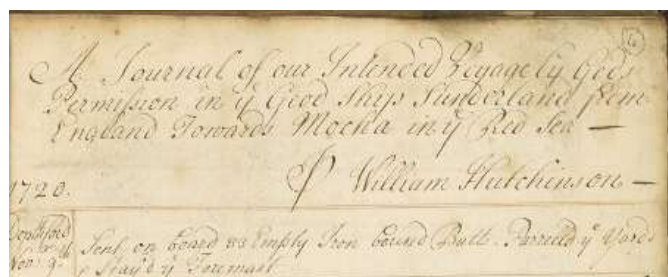 6
A Journal of our Intended Voyage by Gods
Permission in ye Good Ship Sunderland from
England Towards Mocha in ye Red Sea —
1720. William Hutchinson —
Deptford
Novr 9th Sent on board 83 Empty Iron bound Butts. Parreled ye Yards
& Stay'd ye Foremast